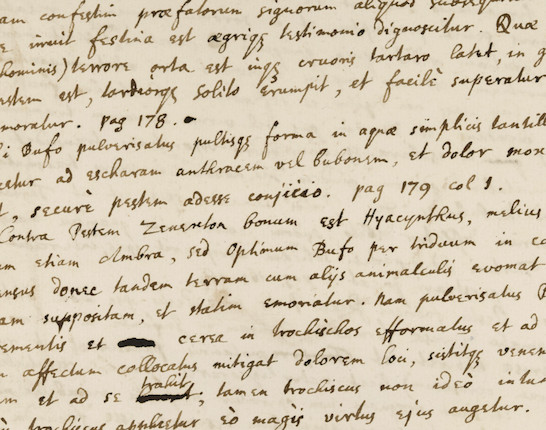 am confestim præfatorum signorum aliquod subsequi
inuit festina est ægriq̨ testimonio dignoscitur. Quæ
hominis) terrore orta est inq̨ cruoris tartaro latet, in
estem est, tardiorq̨ solito erumpit, et facilè superatur
moratur. pag 178.
Bufo pulverisatus pultisq̨ forma in aquæ simplicis tantill
etur ad escharam anthracem vel bubonem, et dolor mox
t, securè pestem adesse conjicio. pag 179 col 1.
Contra Pestem Zenexton bonum est Hyacynthus, melius
am etiam Ambra, sed Optimum Bufo per triduum in
ensus donec tandem terram cum alijs animalculis evomat
am suppositam, et statim emoriatur. Nam pulverisatus
ementis et cerea in trochischos efformatus et ad
affectum collocatus mitigat dolorem loci, sistitq̨ venen
m et ad se trahit; tamen trochiscus non ideò
trochiscus appbetur eò magis virtus ejus augetur.